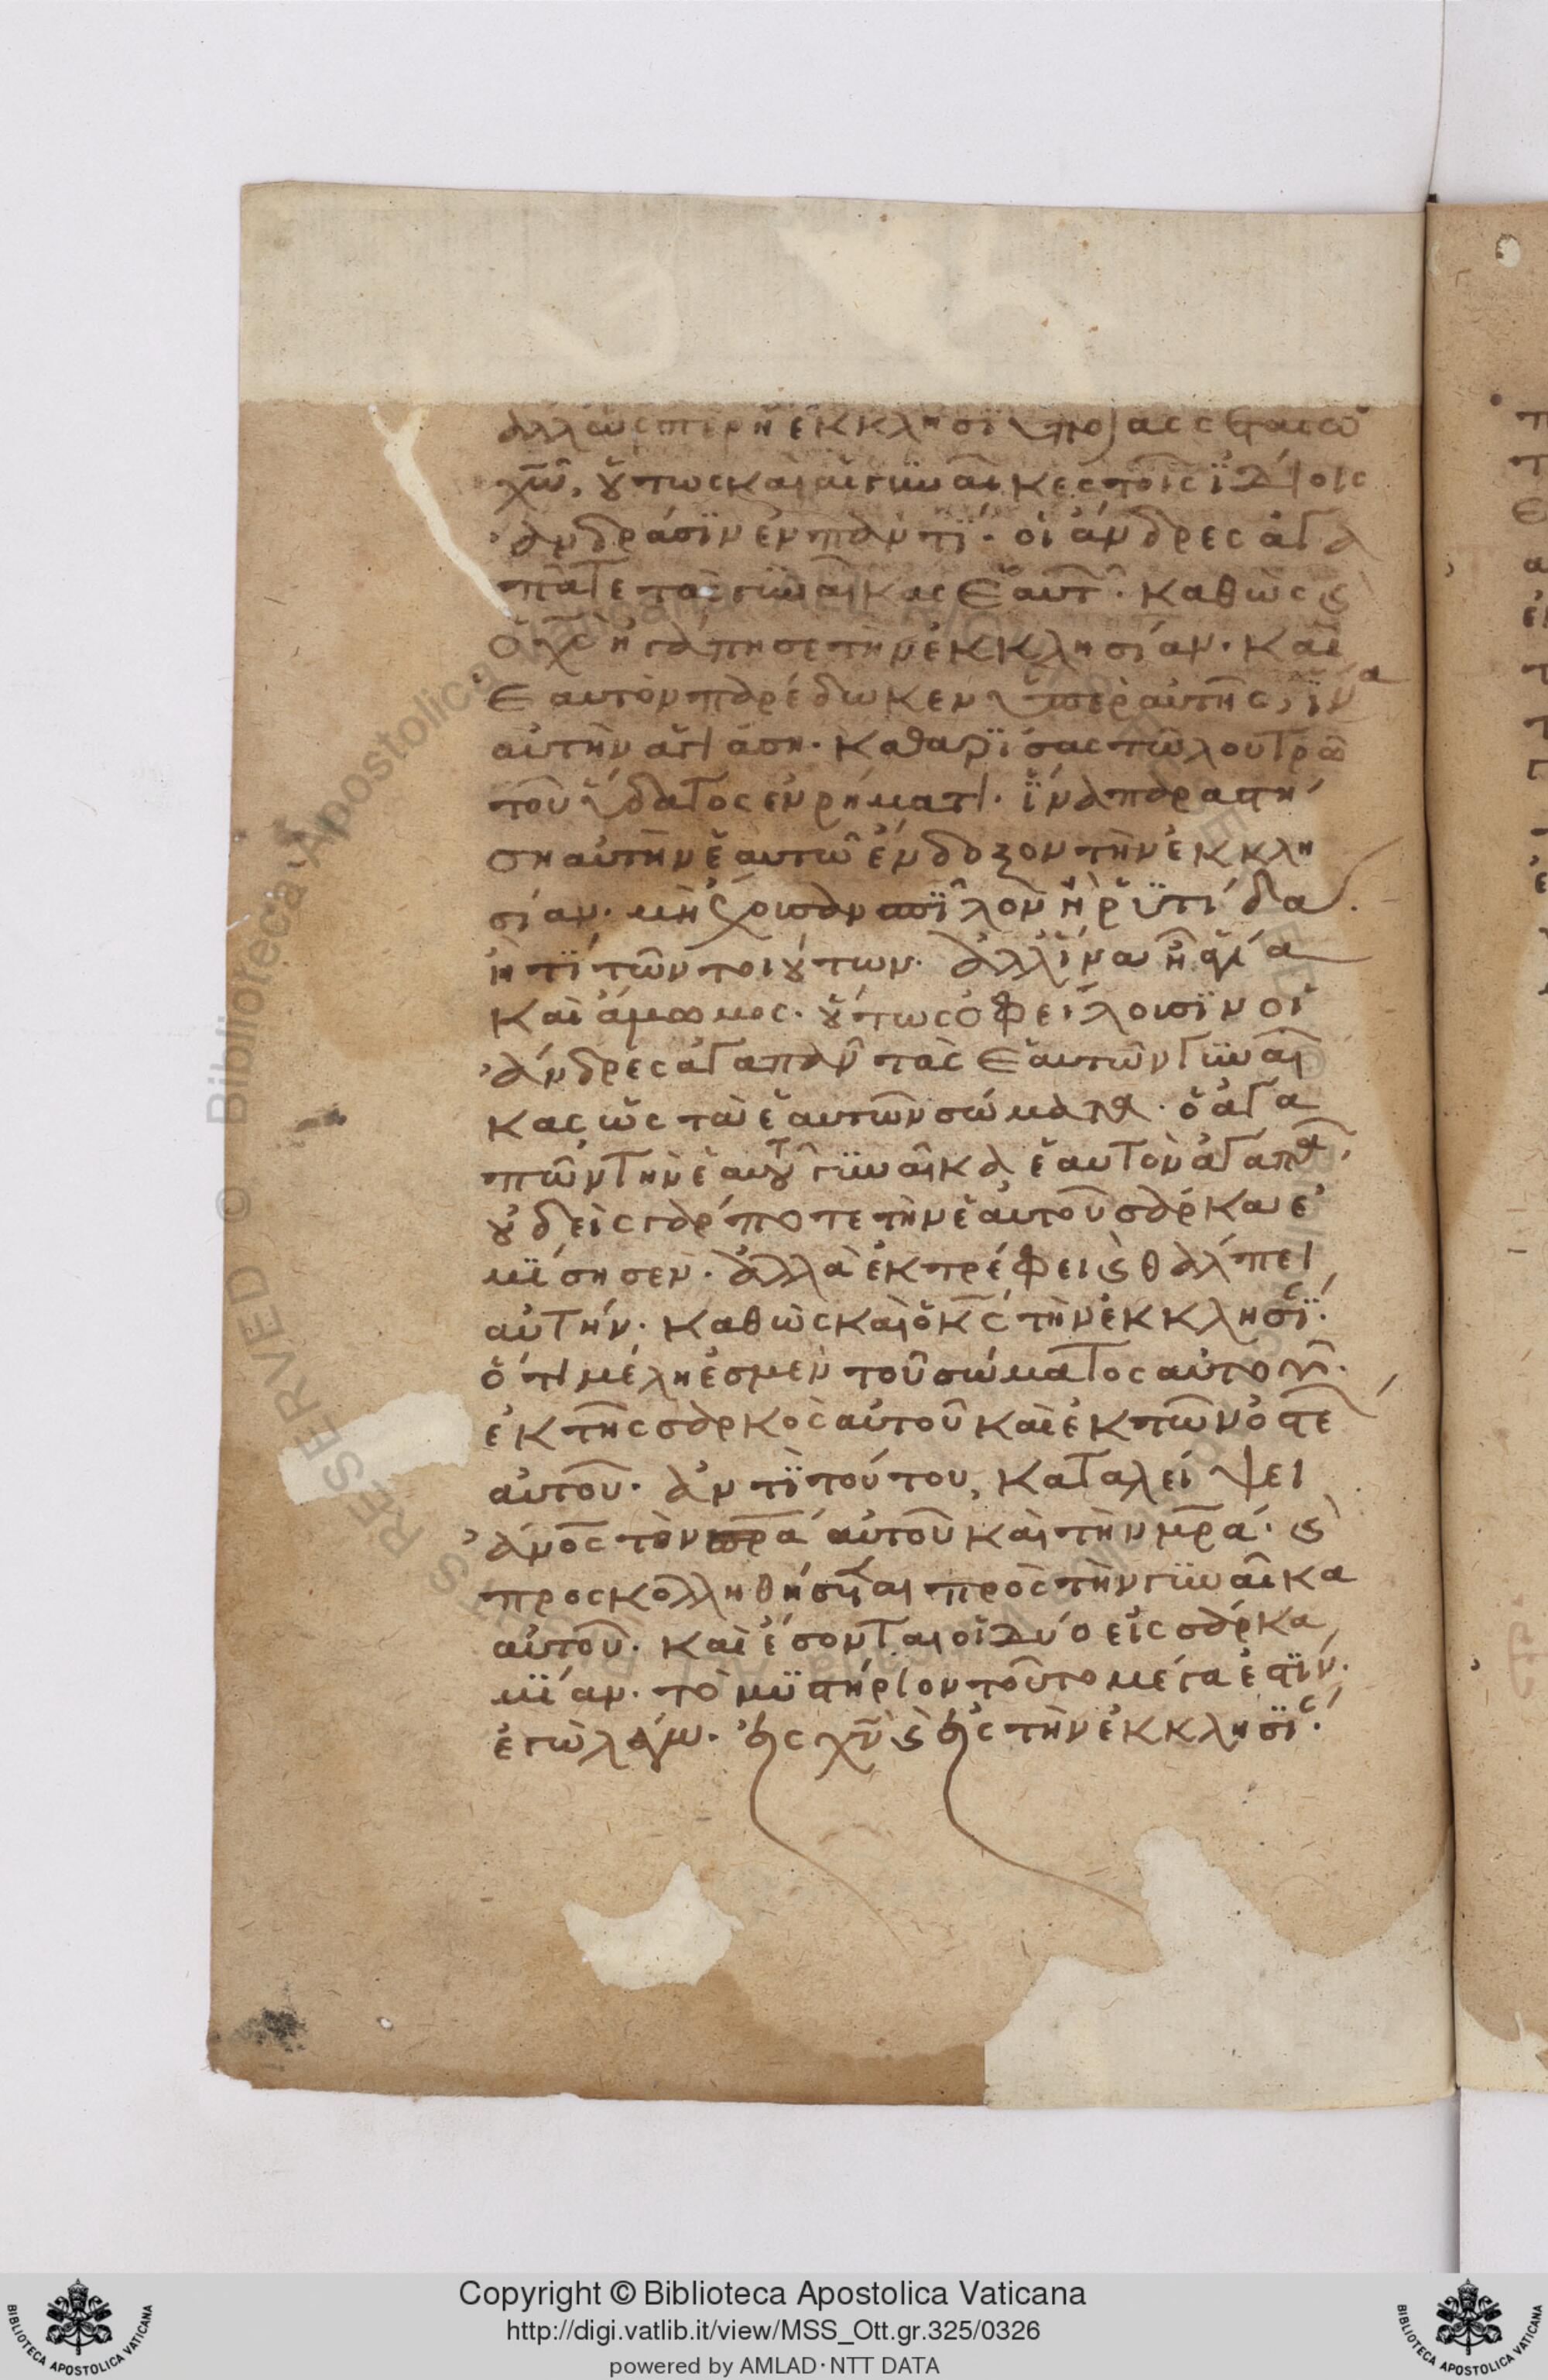 ἀλλ ὥσπερ ἡ ἐκκλησί ὑποτάσσεται τῶ
χω̅, οὕτως καὶ αἱ γυναῖκες τοῖς ἰδίοις
ἀνδράσιν ἐν παντί· οἱ ἄνδρες ἀγα
πᾶτε τὰς γυναῖκας ἑαυτ· καθὼς ϗ
ὁ χς̅ ἠγάπησε τὴν ἐκκλησίαν· καὶ
ἑαυτὸν παρέδωκεν ὑπὲρ αὐτῆς, ἵνα
αὐτὴν ἁγιάση· καθαρίσας τῶ λουτρῶ
τοῦ ὕδατος ἐν ρήματι· ἵνα παραστή
ση αὐτὴν ἑαυτῶ ἔνδοξον τὴν ἐκκλη
σίαν· μὴ ἔχουσαν σπῖλον ἢ ῥυτίδα
ἤ τι τῶν τοιούτων· ἀλλ ἵνα ἦ ἁγία
καὶ ἄμωμος· οὕτως ὀφείλουσιν οἱ
ἄνδρες ἀγαπᾶν τὰς ἑαυτῶν γυναῖ
κας ὡς τὰ ἑαυτῶν σώματα· ὁ ἀγα
πῶν τὴν ἑαυτοῦ γυναῖκα ἑαυτὸν ἀγαπᾶ,
οὐδεὶς γάρ ποτε τὴν ἑαυτοῦ σάρκα ἐ
μίσησεν· ἀλλὰ ἐκτρέφει ϗ θάλπει
αὐτήν· καθὼς καὶ ὁ κς̅ τὴν ἐκκλησί·
ὅτι μέλη ἐσμὲν τοῦ σώματος αὐτοῦ·
ἐκ τῆς σαρκὸς αὐτοῦ καὶ ἐκ τῶν ὀστέ
αὐτοῦ· ἀντὶ τούτου, καταλείψει
ἄνο̅ς τὸν πρ̅α αὐτοῦ καὶ τὴν μρ̅α· ϗ
προσκολληθήσεται πρὸς τὴν γυναῖκα
αὐτοῦ· καὶ ἔσονται οἱ δύο εἰς σάρκα
μίαν· τὸ μυστήριον τοῦτο μέγα ἐστίν·
ἐγὼ λέγω· εἰς χν̅ ϗ εἰς τὴν ἐκκλησί·
Copyright © Biblioteca Apostolica Vaticana
http://digi.vatlib.it/view/MSS_Ott.gr.325/0326
powered by AMLAD·NTT DATA
BIBLIOTECA APOSTOLICA VATICANA
BIBLIOTECA APOSTOLICA VATICANA